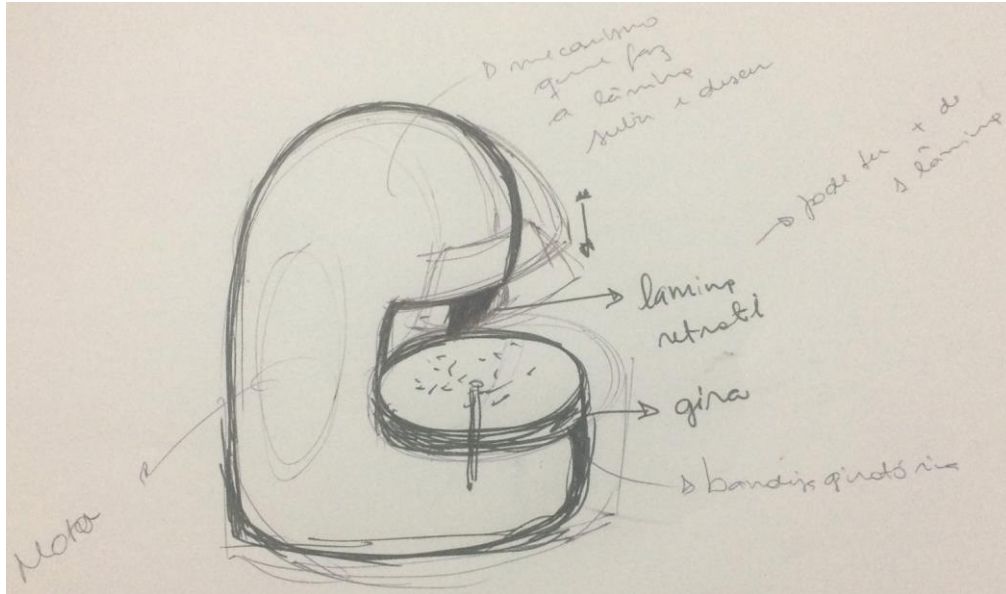 mecanismo
que faz
a lâmina
subir e descer
pode ter + de
1 lâmina
lamina
retratil
gira
bandeja giratória
Motor